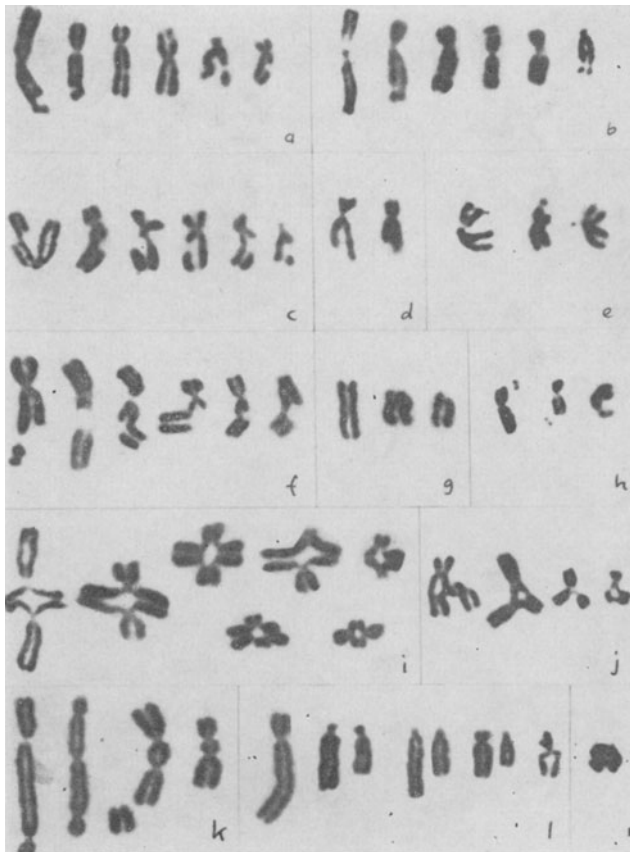 a b
c d e
f g h
i j
k l